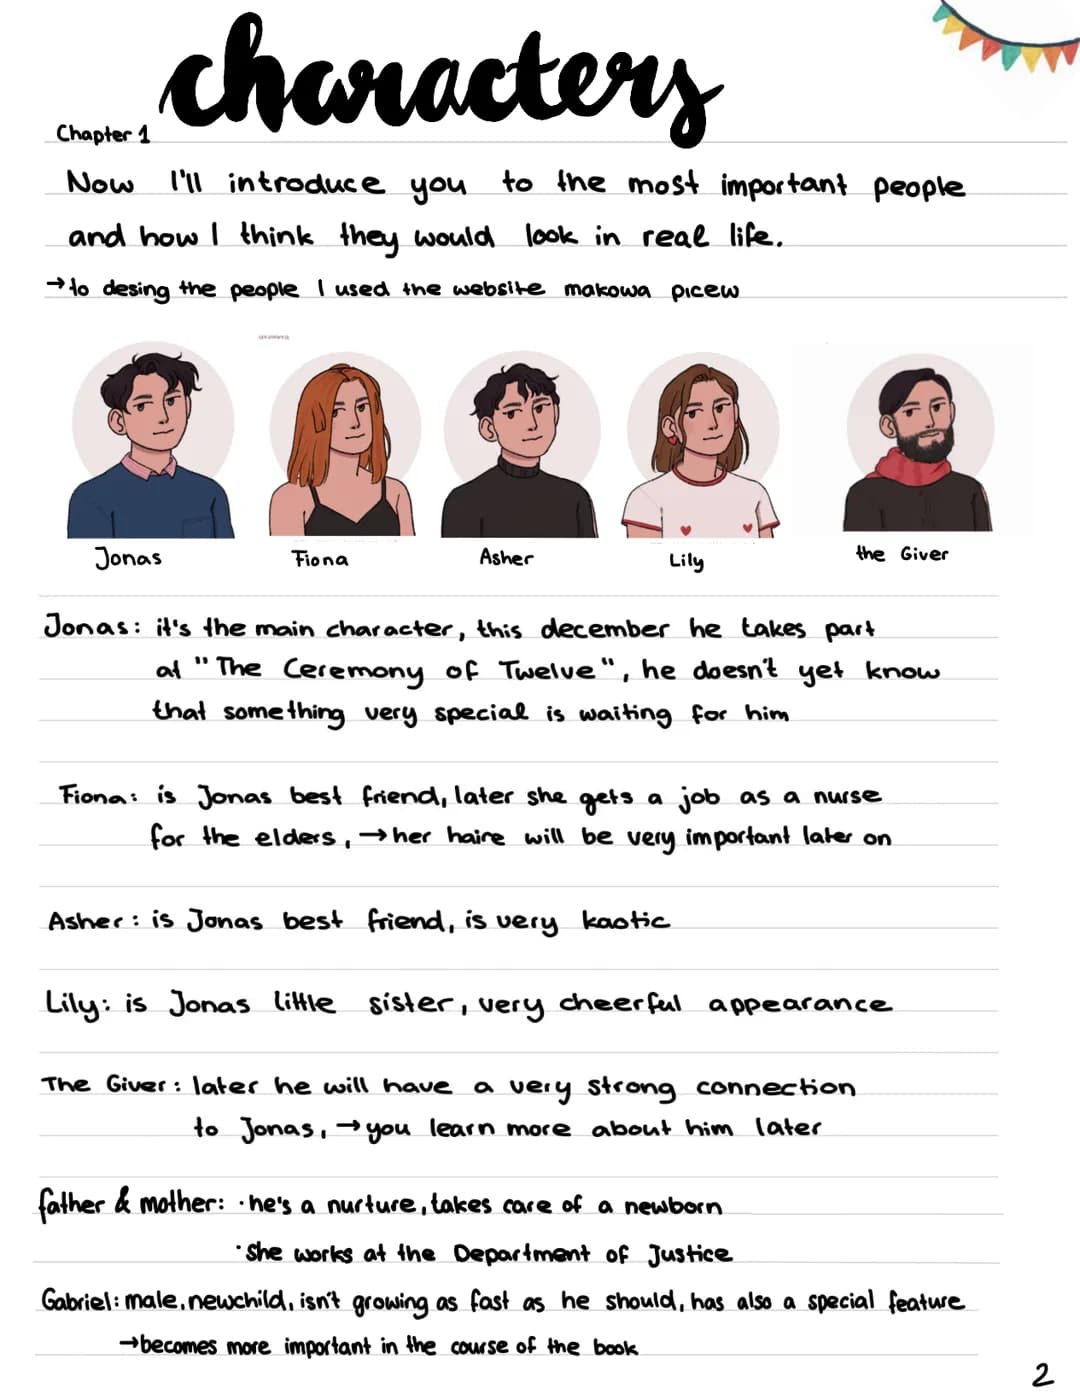 characters
Chapter 1
Now I'll introduce you to the most important people
and how I think they would look in real life.
→to desing the people I used the website makowa picew
Jonas
Fiona
Asher
Lily
the Giver
Jonas: it's the main character, this december he takes part
at "The Ceremony of Twelve", he doesn't yet know
that something very special is waiting for him
Fiona: is Jonas best friend, later she gets a job as a nurse
for the elders, →her haire will be very important later on
Asher: is Jonas best friend, is very kaotic
Lily: is Jonas little sister, very cheerful appearance
The Giver: later he will have a very strong connection
to Jonas, →you learn more about him later
father & mother: ·he's a nurture, takes care of a newborn
·she works at the Department of Justice
Gabriel: male, newchild, isn't growing as fast as he should, has also a special feature
→becomes more important in the course of the book
2